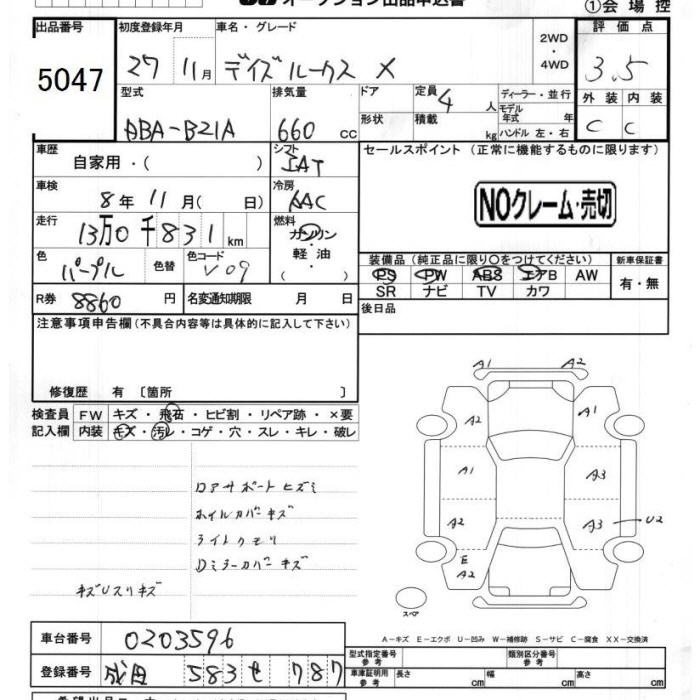 オークション出品申込書
①会場控
出品番号
5047
初度登録年月
27 11月
車名・グレード
デイズルークス X
2WD
・
4WD
評価点
3.5
外装 内装
C C
型式
DBA-B21A
排気量
660 cc
ドア
形状
定員
4 人
積載
kg
ディーラー・並行
モデル年式 年
ハンドル 左・右
車歴
自家用・( )
シフト
IAT
車検
8年 11月( 日)
冷房
AAC
走行
13万0千831km
燃料
ガソリン
・
軽油
・
( )
色
パープル
色替
色コード
V09
R券
8860円
名変通知期限 月 日
セールスポイント (正常に機能するものに限ります)
NOクレーム・売切
装備品 (純正品に限り○をつけてください)
PS PW ABS エアB AW
SR ナビ TV カワ
新車保証書
有・無
後日品
注意事項申告欄 (不具合内容等は具体的に記入して下さい)
修復歴 有 〔箇所 〕
検査員記入欄
FW キズ・飛石・ヒビ割・リペア跡・×要
内装 キズ・汚レ・コゲ・穴・スレ・キレ・破レ
ロアサポートヒズミ
ホイルカバーキズ
ライトクモリ
Dミラーカバーキズ
キズUスリキズ
A1 A2
A2 A1
A1 A3
A2 A3 U2
E
A2
スペア
A-キズ E-エクボ U-凹み W-補修跡 S-サビ C-腐食 XX-交換済
車台番号
0203596
登録番号
成田 583せ787
型式指定番号
参考
類別区分番号
参考
車庫証明用
参考
長さ cm 幅 cm 高さ cm